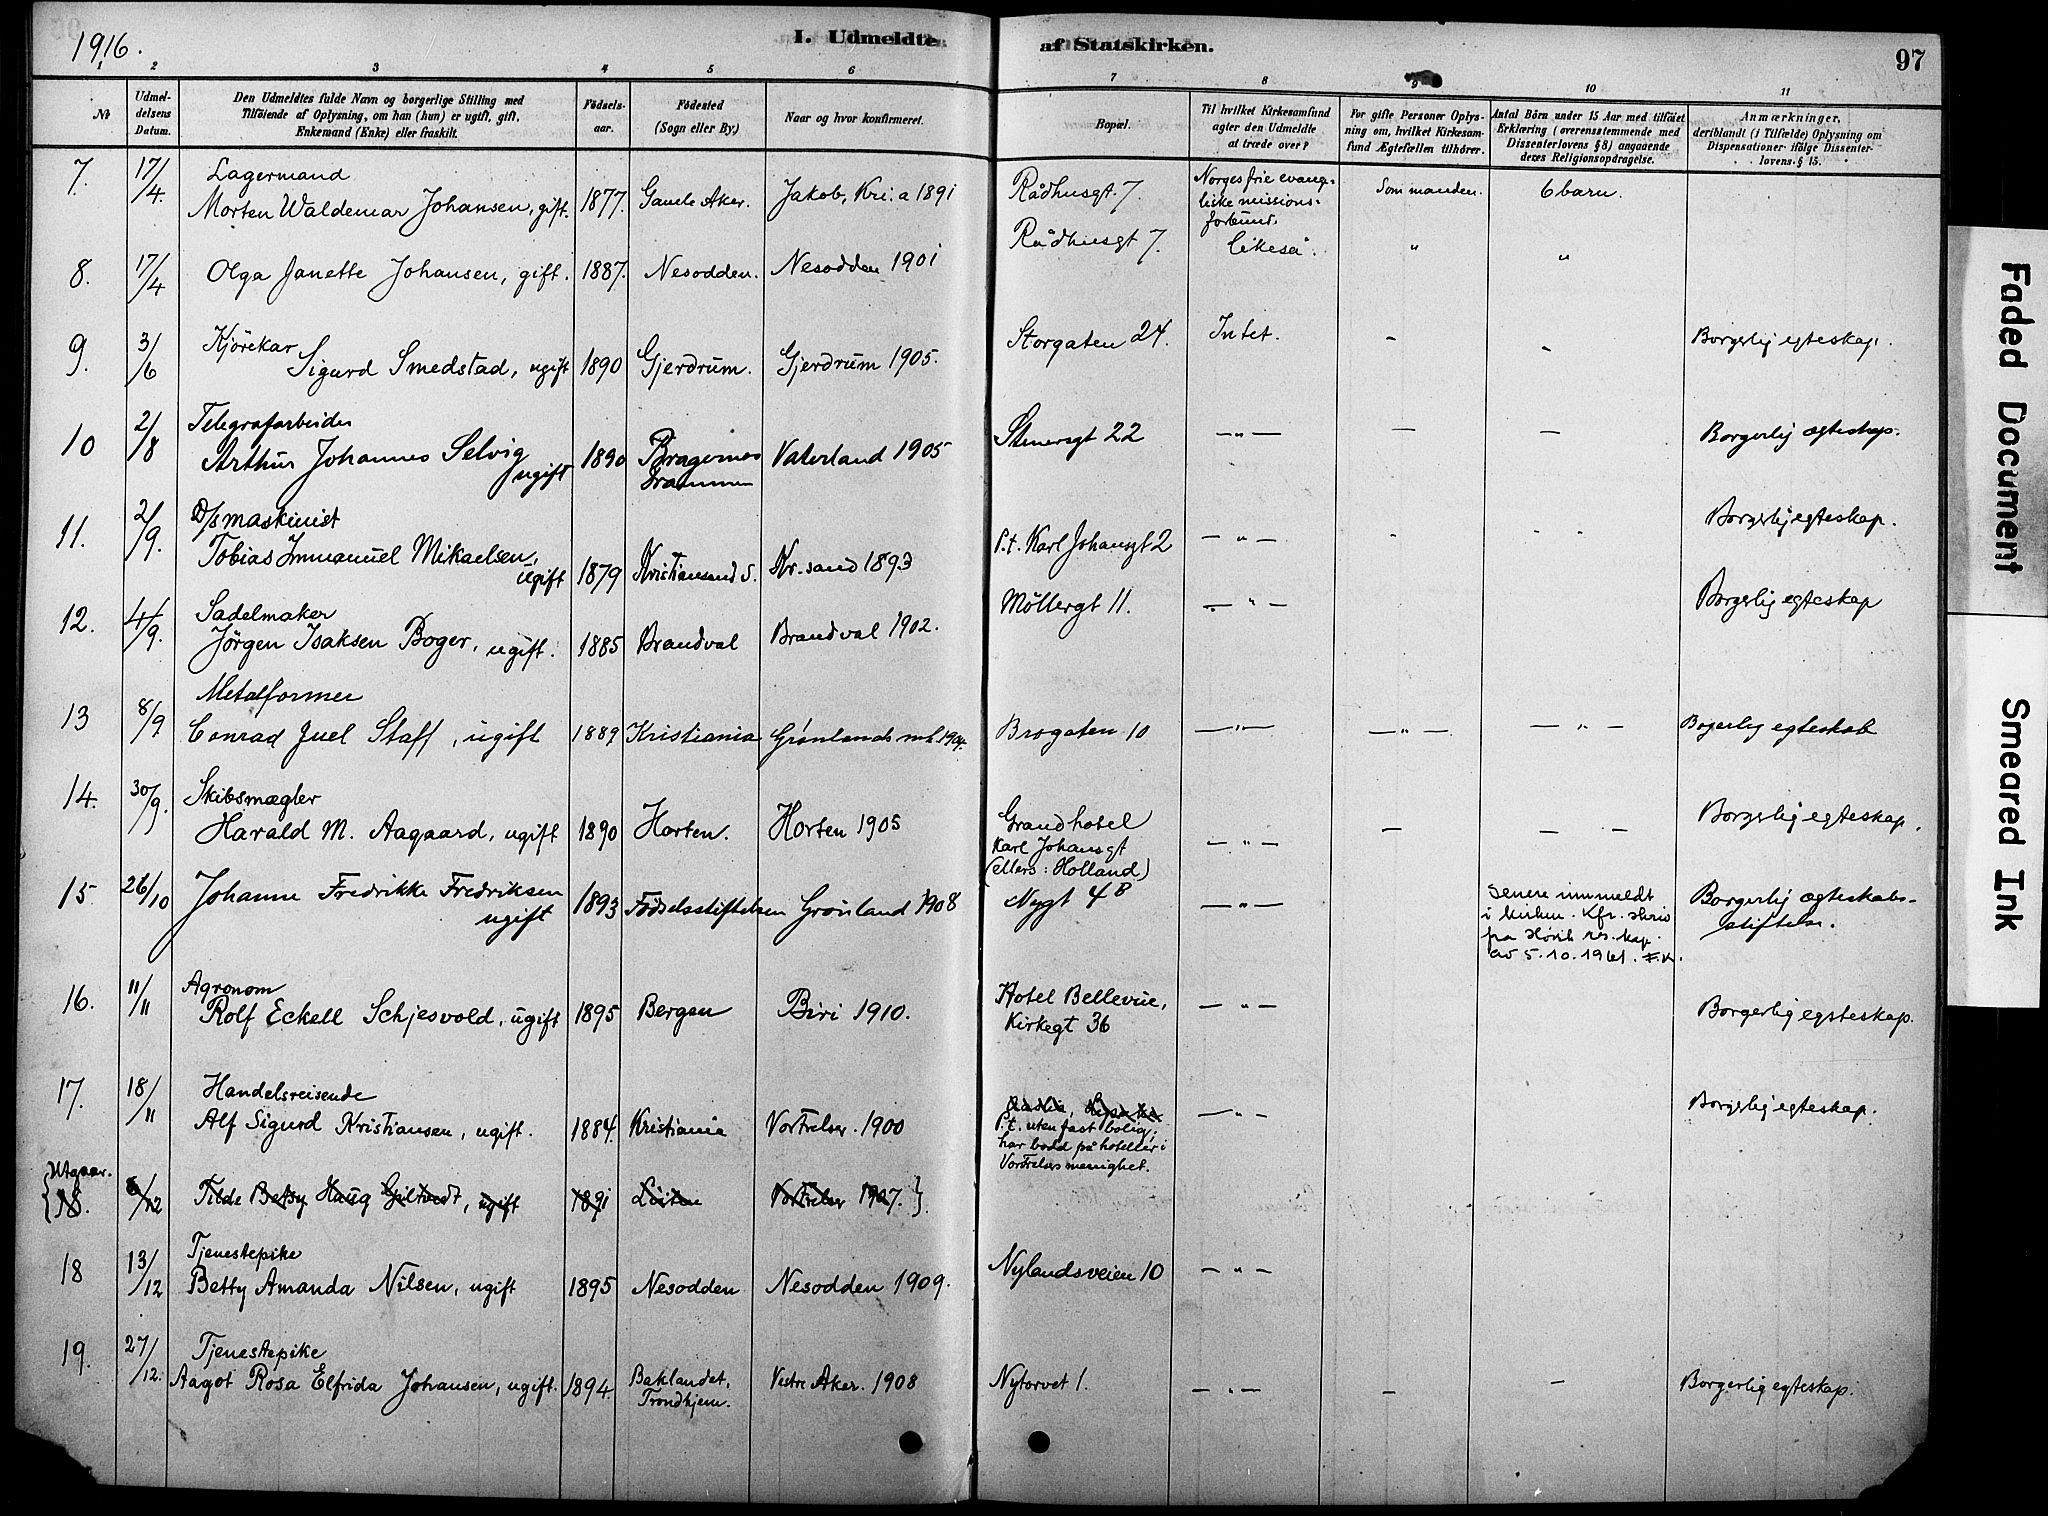 1916.
I. Udmeldte af Statskirken.
97
1 2 3 4 5 6 7 8 9 10 11
№
Udmel-
delsens
Datum.
Den Udmeldtes fulde Navn og borgerlige Stilling med
Tilföiende af Oplysning, om han (hun) er ugift, gift,
Enkemand (Enke) eller fraskilt.
Födsels-
aar.
Födested
(Sogn eller By.)
Naar og hvor konfirmeret.
Bopæl.
Til hvilket Kirkesamfund
agter den Udmeldte
at træde over?
For gifte Personer Oplys-
ning om, hvilket Kirkesam-
fund Ægtefællen tilhörer.
Antal Börn under 15 Aar med tilföiet
Erklæring (overensstemmende med
Dissenterlovens § 8) angaaende
deres Religionsopdragelse.
Anmærkninger,
deriblandt (i Tilfælde) Oplysning om
Dispensationer ifölge Dissenter-
lovens § 15.
7. 17/4. Lagermand
Morten Waldemar Johansen, gift. 1877. Gamle Aker. Jakob, Kri.a 1891 Rådhusgt. 7. Norges frie evang-
liske missions-
forbund. Som manden. 6 barn.
8. 17/4 Olga Janette Johansen, gift. 1887. Nesodden. Nesodden 1901 Rådhusgt 7. likeså. " "
9. 3/6 Kjörekar
Sigurd Smedstad, ugift 1890 Gjerdrum. Gjerdrum 1905. Storgaten 24. Intet. - - Borgerlig egteskap.
10 2/8 Telegrafarbeider
Arthur Johannes Selvig
ugift 1890 Bragernes
Drammen Vaterland 1905 Stenersgt 22 — " — — — Borgerlig ægteskap.
11. 2/9. D/s maskinist
Tobias Immanuel Mikaelsen,
ugift 1879 Kristiansand S. Kr.sand 1893 P.t. Karl Johansgt 2 — " — - - Borgerlig egteskap.
12. 4/9. Sadelmaker
Jörgen Isaksen Boger, ugift. 1885 Brandval Brandval 1902. Möllergt 11. — " — Borgerlig egteskap
13 8/9 Metalformer
Conrad Juel Staff, ugift 1889 Kristiania Grønlands mh. 1904. Brogaten 10 — " — — " — — " — Bogerlig egteskab
14. 30/9. Skibsmægler
Harald M. Aagaard, ugift 1890 Horten. Horten 1905 Grand hotel
Karl Johansgt
(ellers: Holland) — " — — — — Borgerlig egteskap.
15. 26/10 Johanne Fredrikke Fredriksen
ugift 1893 Födselsstiftelsen Grönland 1908 Nygt 4B — " — Senere innmeldt
i kirken. Kfr. skriv
fra Høvik res. kap.
av 5.10.1961. Borgerlig ægteskabs-
stiftelse.
16. 11/11 Agronom
Rolf Eckell Schjesvold, ugift 1895 Bergen Biri 1910. Hotel Bellevue,
Kirkegt 36 — " — Borgerlig egsteskap.
17. 18/11 Handelsreisende
Alf Sigurd Kristiansen, ugift. 1884. Kristiania Vortrelser 1900
P.t. uten fast bolig;
har bodd på hoteller i
Vortrelsers menighet. — " — Borgerlig egteskap.
Utgaar.
{18. 6/12 Tilde Betsy Haug Giltvedt, ugift 1891 Löiten Vortrelser 1907.}
18 13/12 Tjenestepike
Betty Amanda Nilsen, ugift 1895 Nesodden Nesodden 1909. Nylandsveien 10 — " —
19. 27/12. Tjenestepike
Aagot Rosa Elfrida Johansen, ugift. 1894. Baklandet,
Trondhjem. Vestre Aker. 1908 Nytorvet 1. — " — — — Borgerlig egteskap.
Faded Document
Smeared Ink